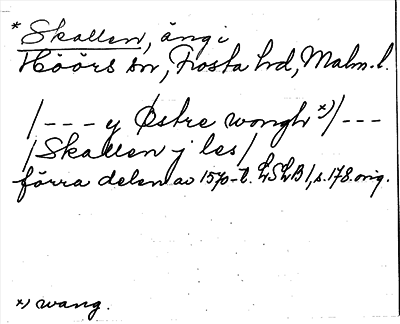 * Skallen, äng i
Höörs sn, Frosta hd, Malm. l.
/--- y Østre wongh *)/---
/Skallen j les/
förra delen av 1570-t. LSLB 1, s. 178. orig.
*) wang.